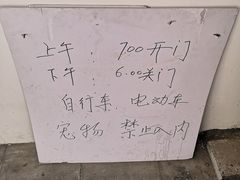 上午：700开门
下午：6.00关门
自行车、电动车
宠物 禁止入内